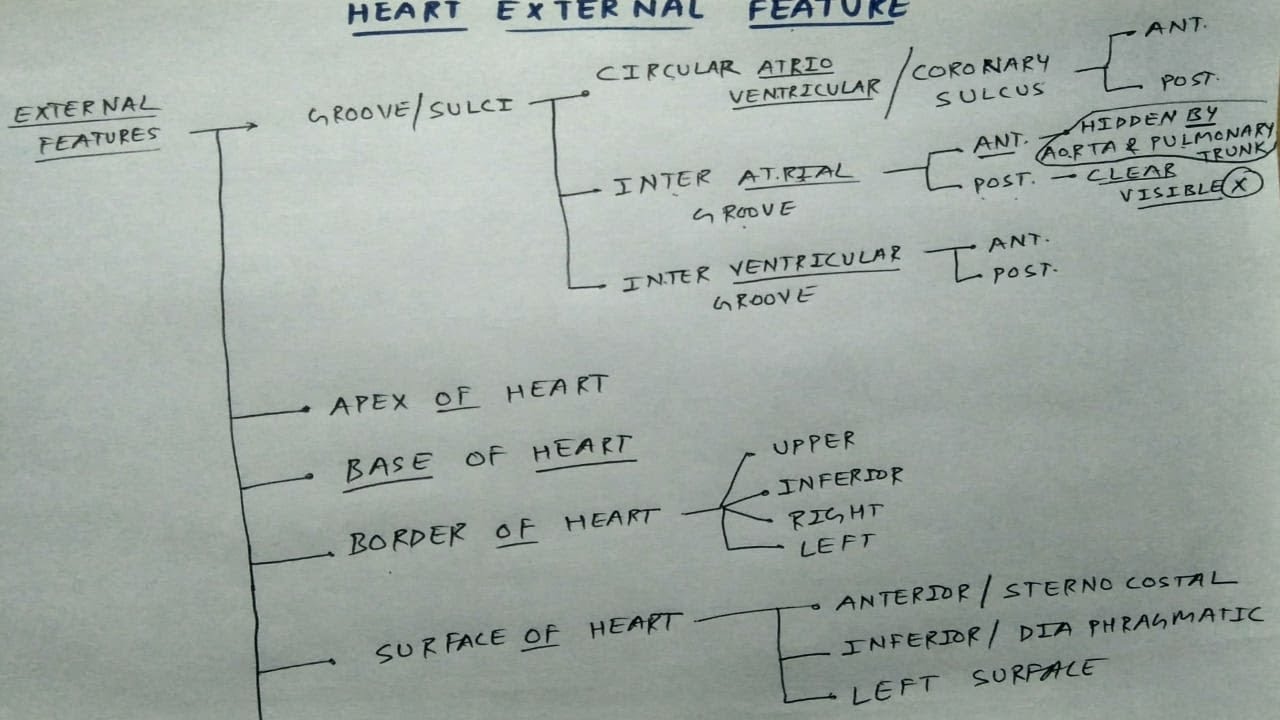 HEART EXTERNAL FEATURE
EXTERNAL
FEATURES
GROOVE/SULCI
CIRCULAR ATRIO
VENTRICULAR
/ CORONARY
SULCUS
ANT.
POST.
INTER ATRIAL
GROOVE
ANT.
HIDDEN BY
AORTA & PULMONARY
TRUNK
POST.
CLEAR
VISIBLE X
INTER VENTRICULAR
GROOVE
ANT.
POST.
APEX OF HEART
BASE OF HEART
BORDER OF HEART
UPPER
INFERIOR
RIGHT
LEFT
SURFACE OF HEART
ANTERIOR / STERNO COSTAL
INFERIOR / DIA PHRAGMATIC
LEFT SURFACE